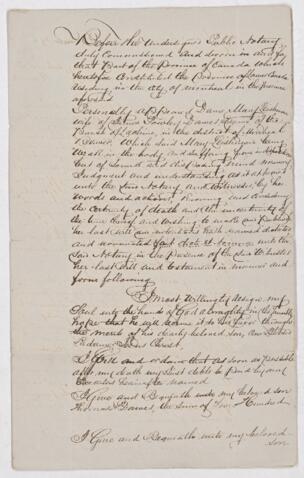 Before the undersigned Public Notary
duly Commissioned and sworn in and for
that Part of the Province of Canada which
heretofore Constituted the Province of Lower Canada
residing in the City of Montreal in the Province
aforesaid
Personally appeared Dame Mary
wife of James of the
Parish of Lachine, in the district of Montreal
which said Mary being
weak in the body and
but of Sound and mind memory
Judgment and understanding as it appeared
unto the said Notary and Witnesses by her
words and actions, Knowing and Considering
the certainty of death and the uncertainty of
the time thereof and wishing to make and Publish
her last Will and testament hath named dictated
and nominated word to word unto the
Said Notary in the presence of the said Witnesses
her last Will and testament in manner and
form following
I most Willingly resign my
Soul into the hands of God Almighty in the humble
hope that he will receive it to his favor through
the merits of his dearly beloved Son, our blessed
Redeemer Jesus Christ.
I Will and ordain that as soon as possible
after my death my just debts be paid by my
Executors hereinafter named
I Give and Bequeath unto my beloved son
Thomas the Sum of Four Hundred
I Give and Bequeath unto my beloved
son